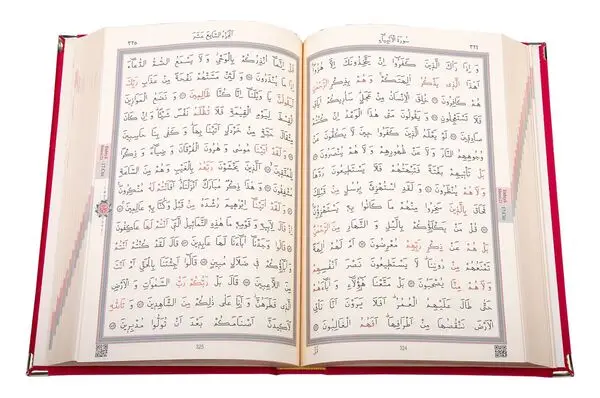 سورة الأنبياء
وَ اِذَا رَاٰكَ الَّذٖينَ كَفَرُوا اِنْ يَتَّخِذُونَكَ اِلَّا هُزُوًا
اَهٰذَا الَّذٖى يَذْكُرُ اٰلِهَتَكُمْ وَ هُمْ بِذِكْرِ الرَّحْمٰنِ
هُمْ كَافِرُونَ خُلِقَ الْاِنْسَانُ مِنْ عَجَلٍ سَاُرٖيكُمْ اٰيَاتٖى
فَلَا تَسْتَعْجِلُونِ وَ يَقُولُونَ مَتٰى هٰذَا الْوَعْدُ اِنْ كُنْتُمْ
صَادِقٖينَ لَوْ يَعْلَمُ الَّذٖينَ كَفَرُوا حٖينَ لَا يَكُفُّونَ عَنْ
وُجُوهِهِمُ النَّارَ وَ لَا عَنْ ظُهُورِهِمْ وَ لَا هُمْ يُنْصَرُونَ
بَلْ تَاْتٖيهِمْ بَغْتَةً فَتَبْهَتُهُمْ فَلَا يَسْتَطٖيعُونَ رَدَّهَا
وَ لَا هُمْ يُنْظَرُونَ وَ لَقَدِ اسْتُهْزِئَ بِرُسُلٍ مِنْ قَبْلِكَ
فَحَاقَ بِالَّذٖينَ سَخِرُوا مِنْهُمْ مَا كَانُوا بِهٖ يَسْتَهْزِؤُنَ
قُلْ مَنْ يَكْلَؤُكُمْ بِالَّيْلِ وَ النَّهَارِ مِنَ الرَّحْمٰنِ
بَلْ هُمْ عَنْ ذِكْرِ رَبِّهِمْ مُعْرِضُونَ اَمْ لَهُمْ اٰلِهَةٌ
تَمْنَعُهُمْ مِنْ دُونِنَا لَا يَسْتَطٖيعُونَ نَصْرَ اَنْفُسِهِمْ
وَ لَا هُمْ مِنَّا يُصْحَبُونَ بَلْ مَتَّعْنَا هٰؤُلَاءِ وَ اٰبَاءَهُمْ
حَتّٰى طَالَ عَلَيْهِمُ الْعُمُرُ اَفَلَا يَرَوْنَ اَنَّا نَاْتِى
الْاَرْضَ نَنْقُصُهَا مِنْ اَطْرَافِهَا اَفَهُمُ الْغَالِبُونَ
324
الجزء السابع عشر
٣٢٥
قُلْ اِنَّمَا اُنْذِرُكُمْ بِالْوَحْىِ وَ لَا يَسْمَعُ الصُّمُّ الدُّعَاءَ
اِذَا مَا يُنْذَرُونَ وَ لَئِنْ مَسَّتْهُمْ نَفْحَةٌ مِنْ عَذَابِ رَبِّكَ
لَيَقُولُنَّ يَا وَيْلَنَا اِنَّا كُنَّا ظَالِمٖينَ وَ نَضَعُ الْمَوَازٖينَ
الْقِسْطَ لِيَوْمِ الْقِيٰمَةِ فَلَا تُظْلَمُ نَفْسٌ شَيْئًا وَ اِنْ كَانَ
مِثْقَالَ حَبَّةٍ مِنْ خَرْدَلٍ اَتَيْنَا بِهَا وَ كَفٰى بِنَا حَاسِبٖينَ
وَ لَقَدْ اٰتَيْنَا مُوسٰى وَ هٰرُونَ الْفُرْقَانَ وَ ضِيَاءً وَ ذِكْرًا
لِلْمُتَّقٖينَ اَلَّذٖينَ يَخْشَوْنَ رَبَّهُمْ بِالْغَيْبِ وَ هُمْ مِنَ السَّاعَةِ
مُشْفِقُونَ وَ هٰذَا ذِكْرٌ مُبَارَكٌ اَنْزَلْنَاهُ اَفَاَنْتُمْ لَهُ مُنْكِرُونَ
وَ لَقَدْ اٰتَيْنَا اِبْرٰهٖيمَ رُشْدَهُ مِنْ قَبْلُ وَ كُنَّا بِهٖ عَالِمٖينَ
اِذْ قَالَ لِاَبٖيهِ وَ قَوْمِهٖ مَا هٰذِهِ التَّمَاثٖيلُ الَّتٖى اَنْتُمْ لَهَا عَاكِفُونَ
قَالُوا وَجَدْنَا اٰبَاءَنَا لَهَا عَابِدٖينَ قَالَ لَقَدْ كُنْتُمْ اَنْتُمْ
وَ اٰبَاؤُكُمْ فٖى ضَلَالٍ مُبٖينٍ قَالُوا اَجِئْتَنَا بِالْحَقِّ اَمْ اَنْتَ
مِنَ اللَّاعِبٖينَ قَالَ بَلْ رَبُّكُمْ رَبُّ السَّمٰوَاتِ وَ الْاَرْضِ
الَّذٖى فَطَرَهُنَّ وَ اَنَا عَلٰى ذٰلِكُمْ مِنَ الشَّاهِدٖينَ وَ تَاللّٰهِ
لَاَكٖيدَنَّ اَصْنَامَكُمْ بَعْدَ اَنْ تُوَلُّوا مُدْبِرٖينَ
325